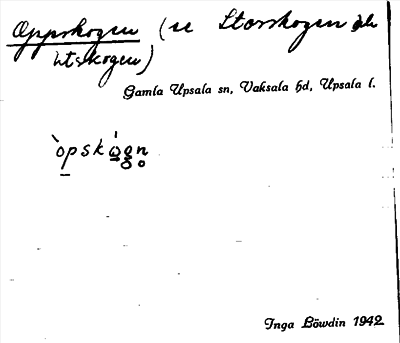 Oppskogen (se Storskogen och
Utskogen)
Gamla Upsala sn, Vaksala hd, Upsala l.
Inga Löwdin 1942